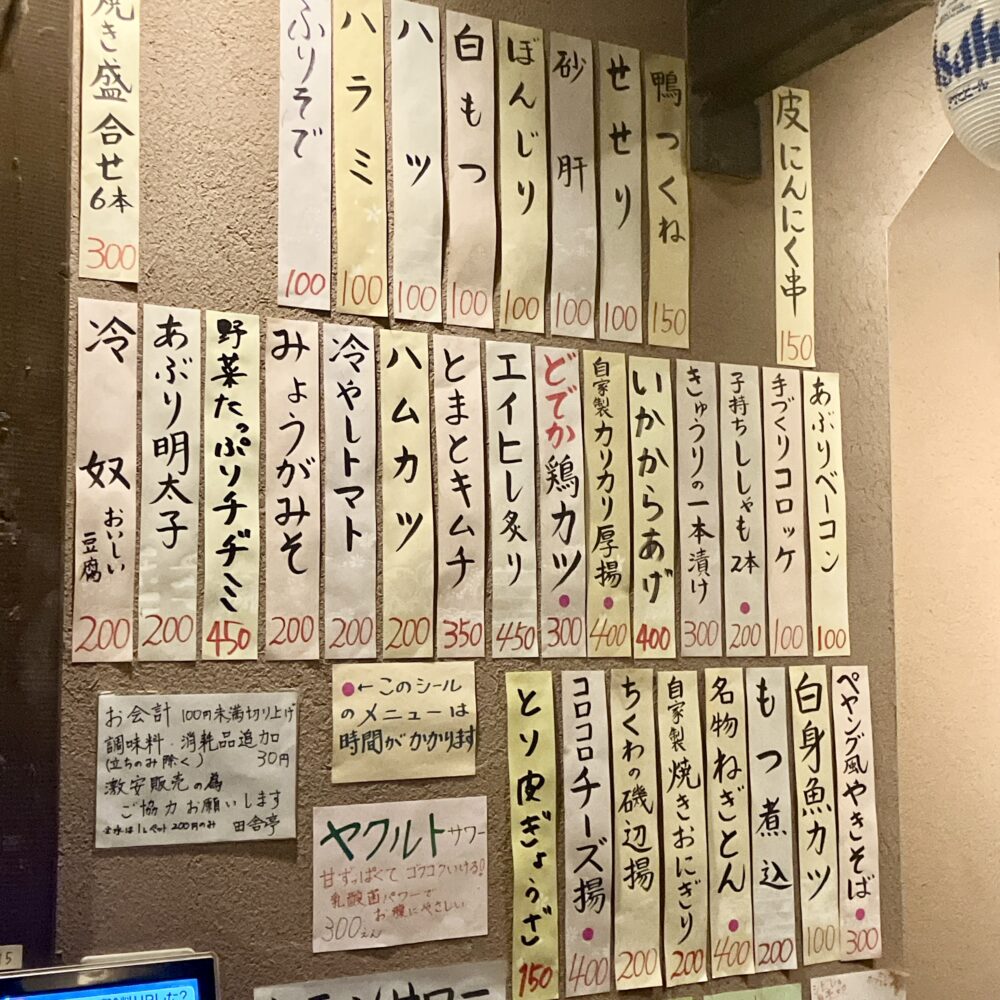 焼き盛合せ
6本
300
ふりそで
100
ハラミ
100
ハツ
100
白もつ
100
ぼんじり
100
砂肝
100
せせり
100
鴨つくね
150
皮にんにく串
150
冷奴
おいしい
豆腐
200
あぶり明太子
200
野菜たっぷりチヂミ
450
みょうがみそ
200
冷やしトマト
200
ハムカツ
200
とまとキムチ
350
エイヒレ炙り
450
どでか鶏カツ
300
自家製カリカリ厚揚
400
いかからあげ
400
きゅうりの一本漬け
300
子持ちししゃも2本
200
手づくりコロッケ
100
あぶりベーコン
100
お会計 100円未満切り上げ
調味料・消耗品追加
(立ちのみ除く) 30円
激安販売の為
ご協力お願いします
田舎亭
←このシール
のメニューは
時間がかかります
ヤクルトサワー
甘ずっぱくて ゴクゴクいける!
乳酸菌パワーで
お腹にやさしい
300えん
とり皮ぎょうざ
150
コロコロチーズ揚
400
ちくわの磯辺揚
200
自家製焼きおにぎり
200
名物ねぎとん
400
もつ煮込
200
白身魚カツ
100
ペヤング風やきそば
300
Asahi
15